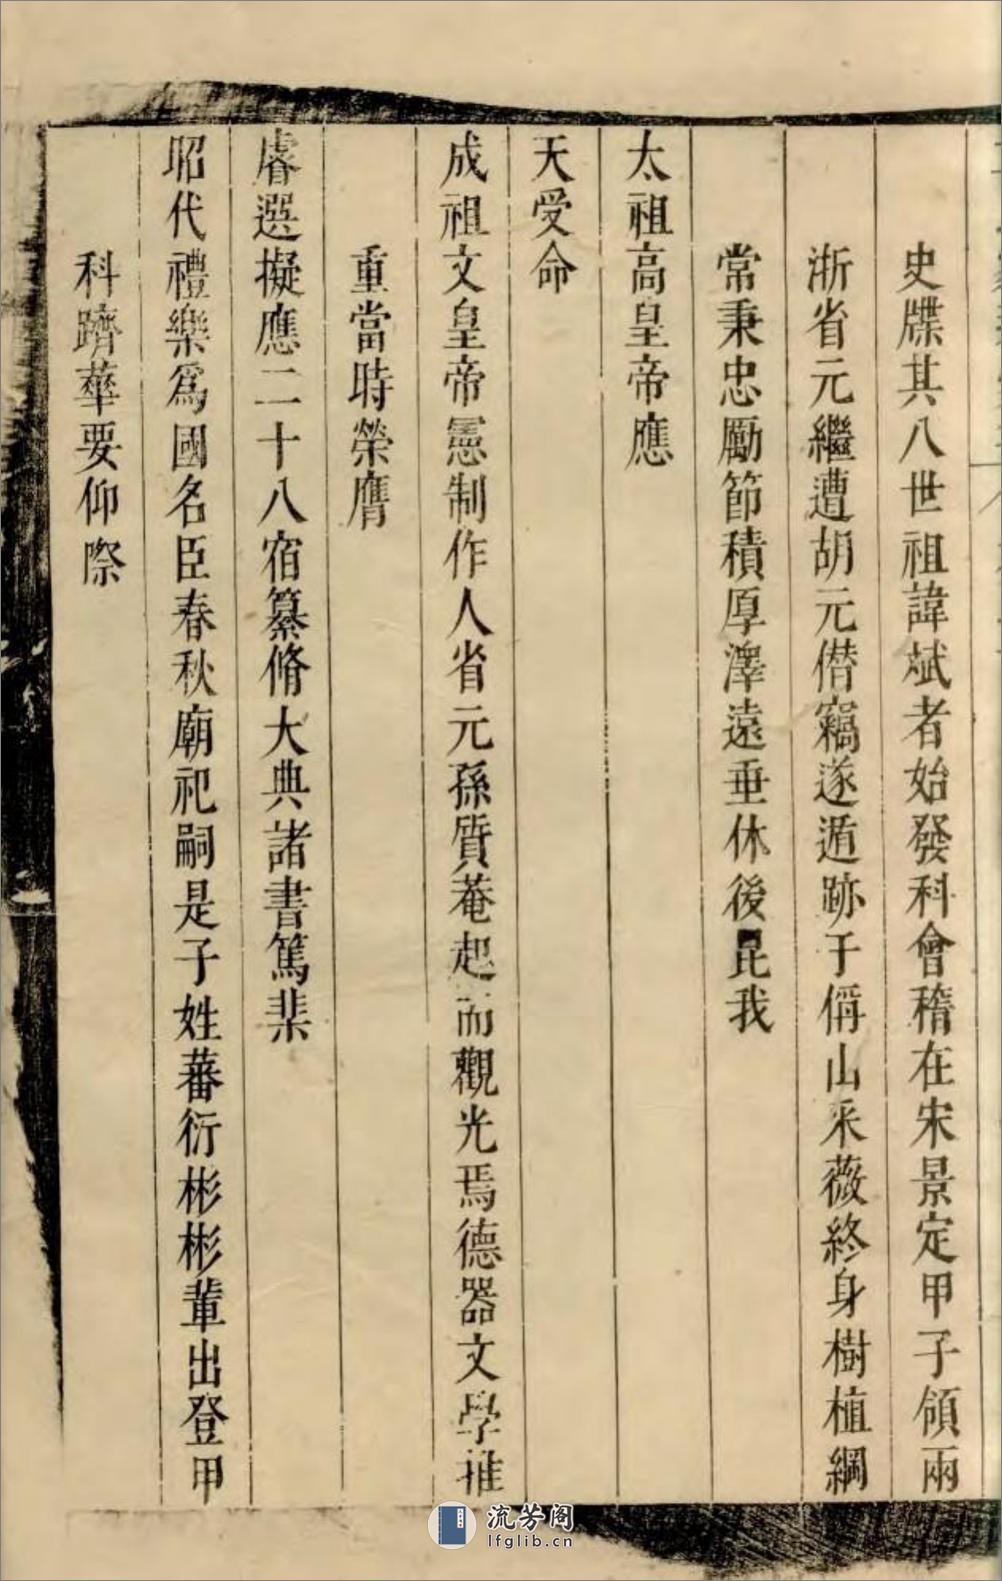 史牒其八世祖諱斌者始發科會稽在宋景定甲子領兩
浙省元繼遭胡元僭竊遂遁跡于偁山采薇終身樹植綱
常秉忠勵節積厚澤遠垂休後昆我
太祖高皇帝應
天受命
成祖文皇帝憲制作人省元孫質菴起而觀光焉德器文學推
重當時榮膺
睿選擬應二十八宿纂脩大典諸書篤棐
昭代禮樂爲國名臣春秋廟祀嗣是子姓蕃衍彬彬輩出登甲
科躋華要仰際
流芳阁
lfglib.cn